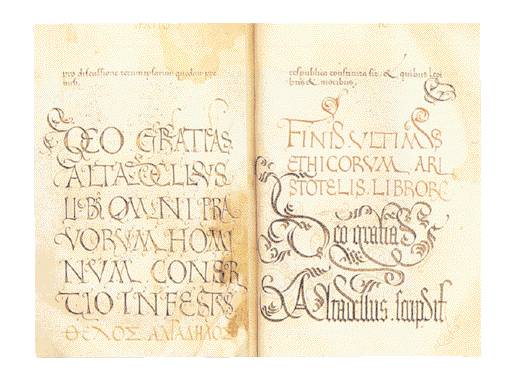 pro discussione rerum ipsarum quedam pre
DEO GRATIAS
ALTADELLVS
LIBRI OMNI PRA
VORVM HOMI
NVM CONSER
TIO INFESTVS
ΘΕΛΟΣ ΑΛΤΑΔΗΛΟΣ
respublica constituta sit. & quibus legi
bus & moribus.
FINIS VLTIMVS
ETHICORVM ARI
STOTELIS. LIBRORV
Deo gratias
Altadellus. scripsit